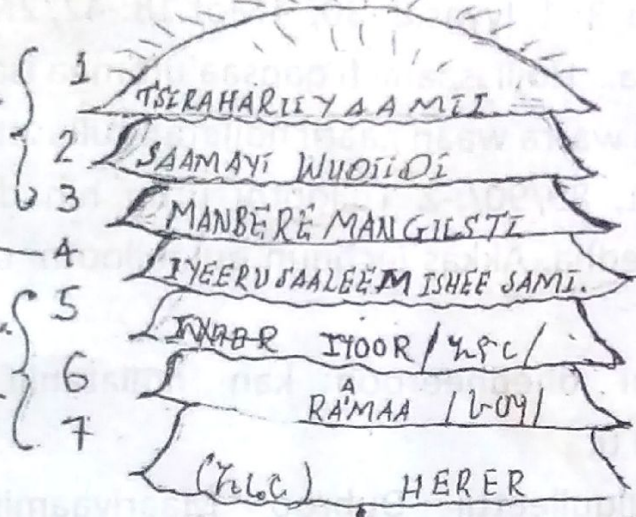 1 TSERAHARIIYAAMII
2 SAAMAYI WUDIIDI
3 MANBERE MANGIISTI
4 IYEERUSAALEEM ISHEE SAMI.
5 IYOOR /ኢዮር/
6 RAMAA /ራማ/
7 (ኤረር) HERER